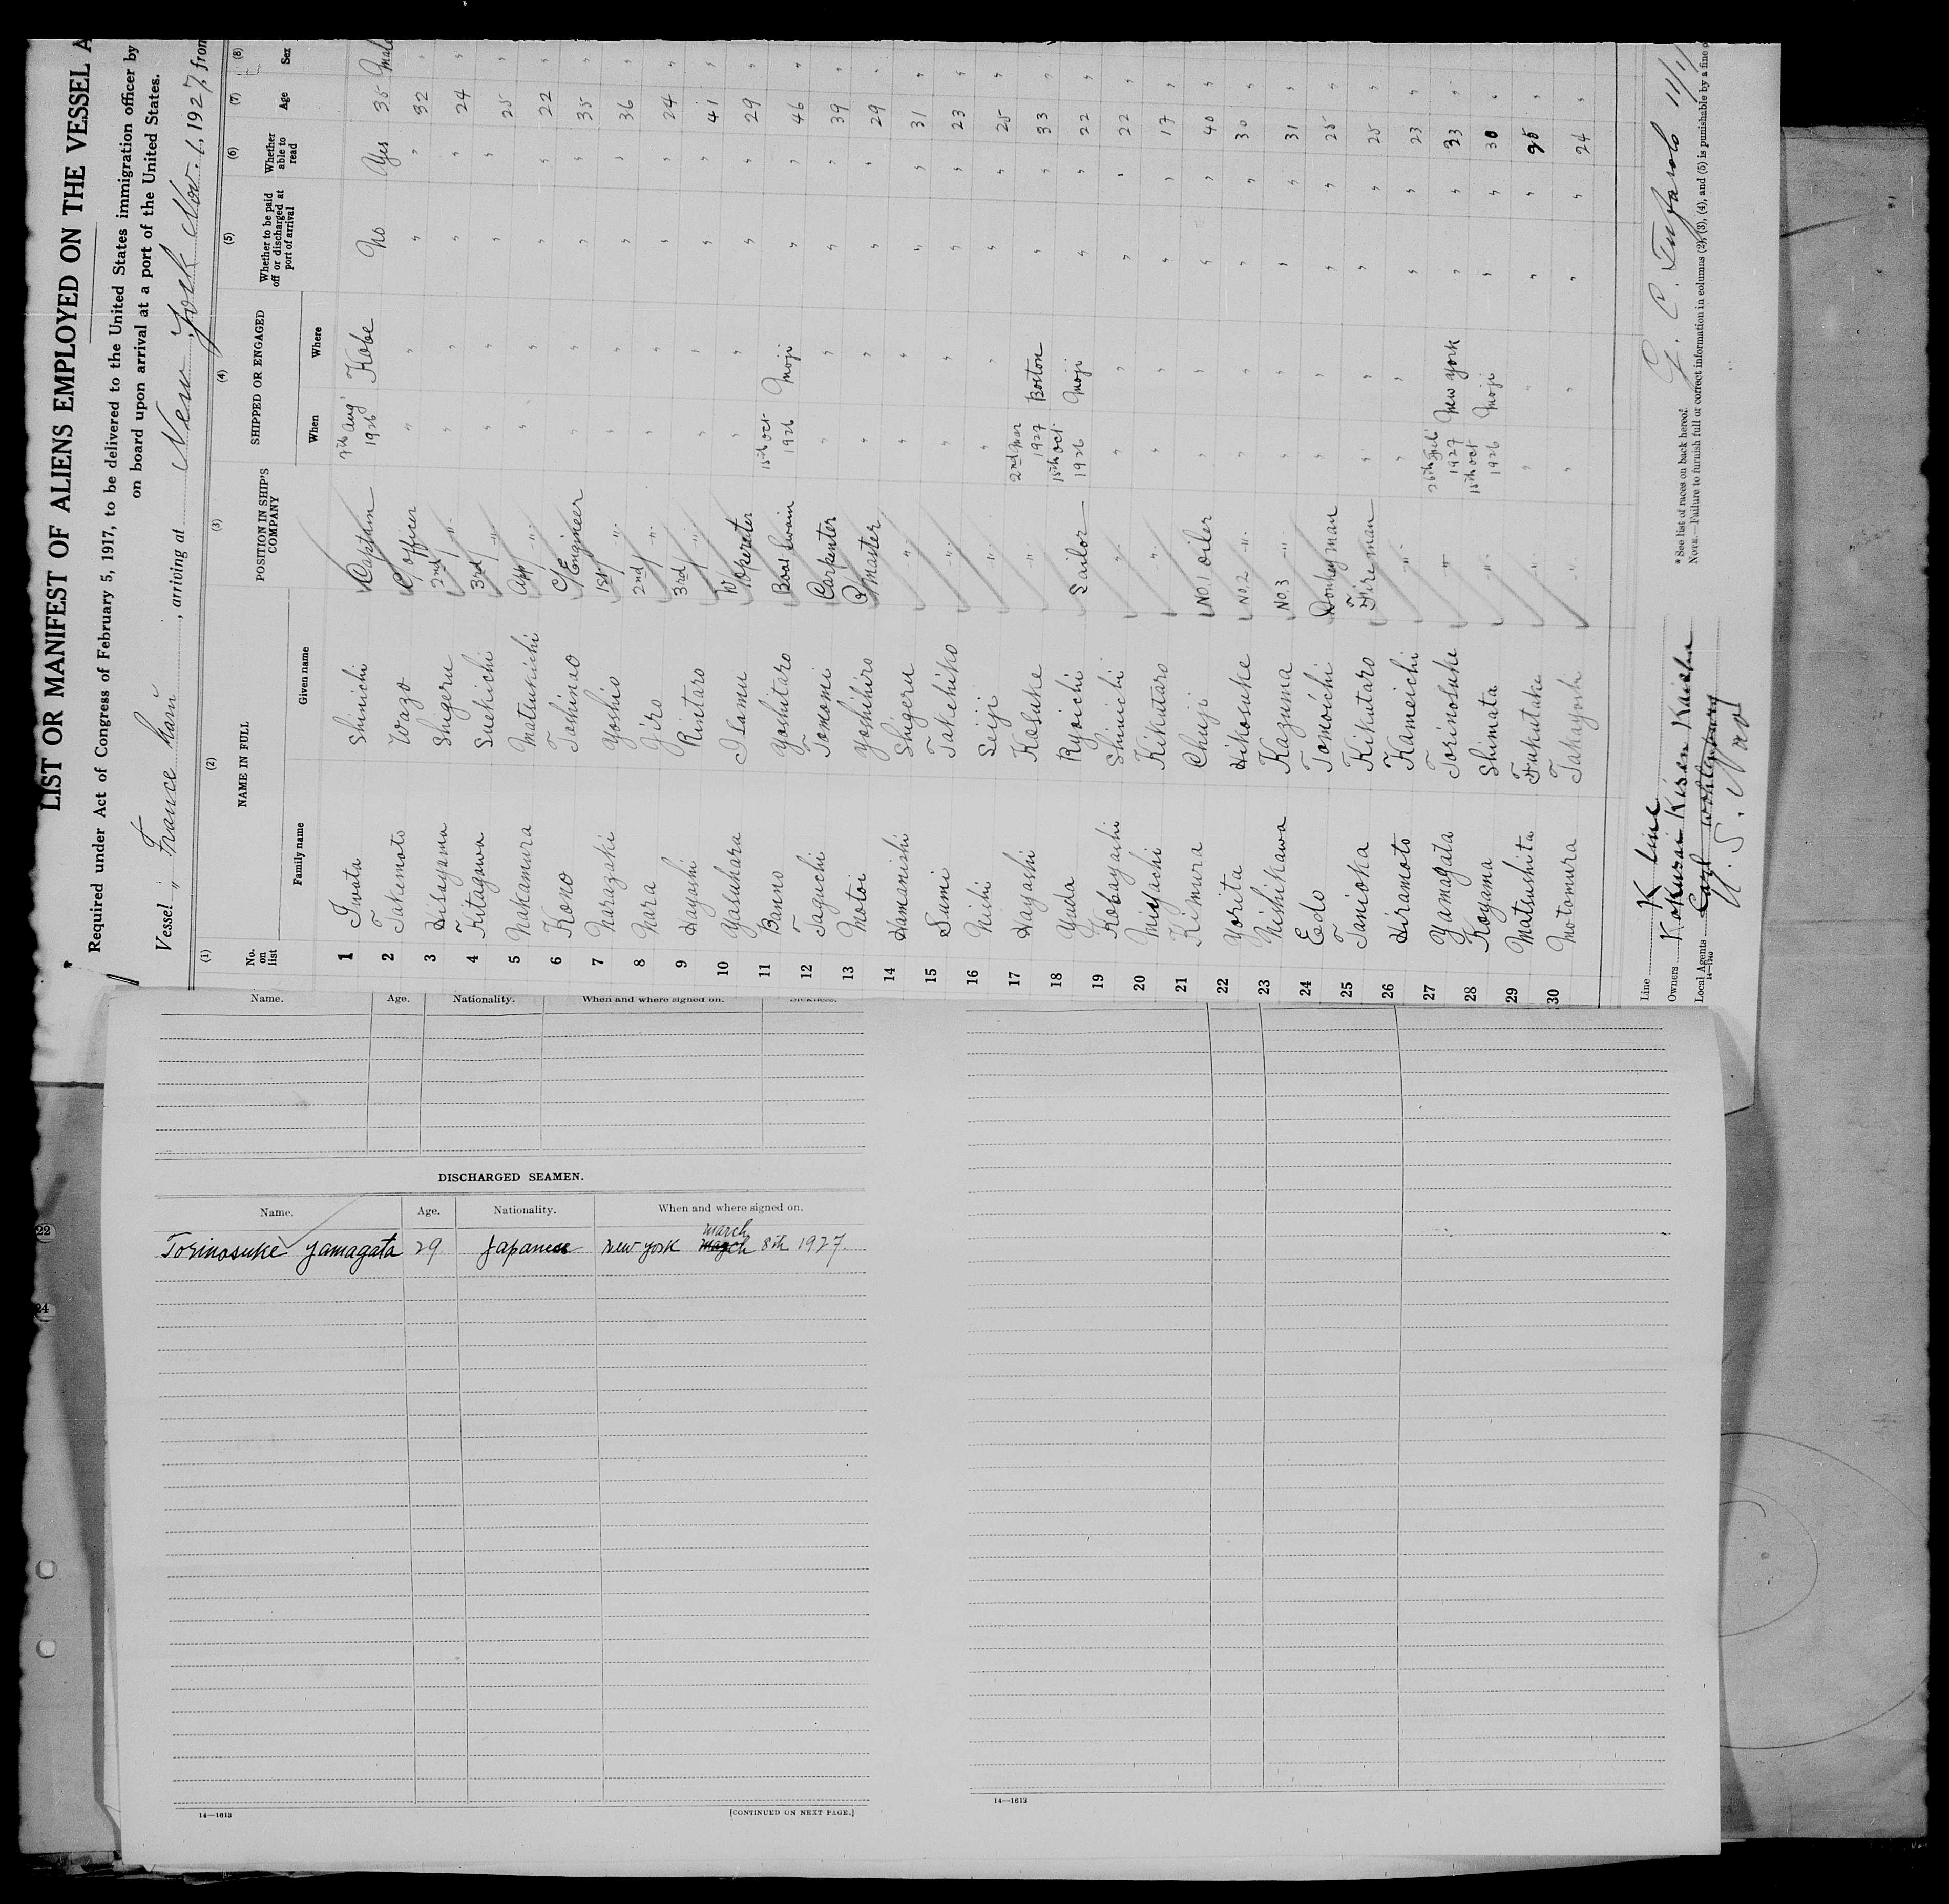 LIST OR MANIFEST OF ALIENS EMPLOYED ON THE VESSEL A
Required under Act of Congress of February 5, 1917, to be delivered to the United States immigration officer by
on board upon arrival at a port of the United States.
Vessel " France Maru , arriving at New York Nov. 1, 1927, from
(1) (2) (3) (4) (5) (6) (7) (8)
No. on list NAME IN FULL POSITION IN SHIP'S COMPANY SHIPPED OR ENGAGED Whether to be paid off or discharged at port of arrival Whether able to read Age Sex
Family name Given name When Where
1 Iwata Shinichi Captain 7th Aug' 1926 Kobe No Yes 35 Male
2 Takemoto Wazo C/ officer " " " " 32 "
3 Hisayama Shigeru 2nd/ -"- " " " " 24 "
4 Kitagawa Suekichi 3rd/ -"- " " " " 25 "
5 Nakamura Matsukichi App -"- " " " " 22 "
6 Kono Toshinao C/Engineer " " " " 35 "
7 Narazaki Yoshio 1st/ -"- " " " " 36 "
8 Nara Jiro 2nd/ -"- " " " " 24 "
9 Hayashi Rintaro 3rd/ -"- " " " " 41 "
10 Yasuhara Isamu W/operater " " " " 29 "
11 Banno Yoshitaro Boat Swain 15th Oct 1926 Moji " " 46 "
12 Taguchi Tomomi Carpenter " " " " 39 "
13 Motoi Yoshihiro Q/master " " " " 29 "
14 Hamanishi Shigeru " " " " " 31 "
15 Sumi Takehiko -"- " " " " 23 "
16 Nichi Seiji " " " " " 25 "
17 Hayashi Kosuke -"- 2nd Mar 1927 Boston " " 33 "
18 Yuda Ryoichi Sailor 15th Oct 1926 Moji " " 22 "
19 Kobayashi Shinichi " " " " " 22 "
20 Miyachi Kikutaro " " " " " 17 "
21 Kimura Chuji No.1 oiler " " " " 40 "
22 Yorita Hikosuke No.2 -"- " " " " 30 "
23 Nishikawa Kazuma No.3 -"- " " " " 31 "
24 Edo Tomoichi Donkeyman " " " " 25 "
25 Tanioka Kikutaro Fireman " " " " 25 "
26 Hiramoto Kameichi -"- " " " " 23 "
27 Yamagata Torinosuke " 1927 New York " " 33 "
28 Koyama Shimata -"- 15th Oct 1926 Moji " " 30 "
29 Matsushita Fukutake " " " " " 25 "
30 Motomura Takayoshi -"- " " " " 24 "
Line K Line
Owners Kokusai Kisen Kaisha
Local Agents
14—1240
* See list of races on back hereof.
NOTE.—Failure to furnish full or correct information in columns (2), (3), (4), and (5) is punishable by a fine o
Name. Age. Nationality. When and where signed on. Sickness.
DISCHARGED SEAMEN.
Name. Age. Nationality. When and where signed on.
march
Torinosuke Yamagata 29 Japanese New York march 8th 1927.
14—1613
[CONTINUED ON NEXT PAGE.]
14—1613
22
24